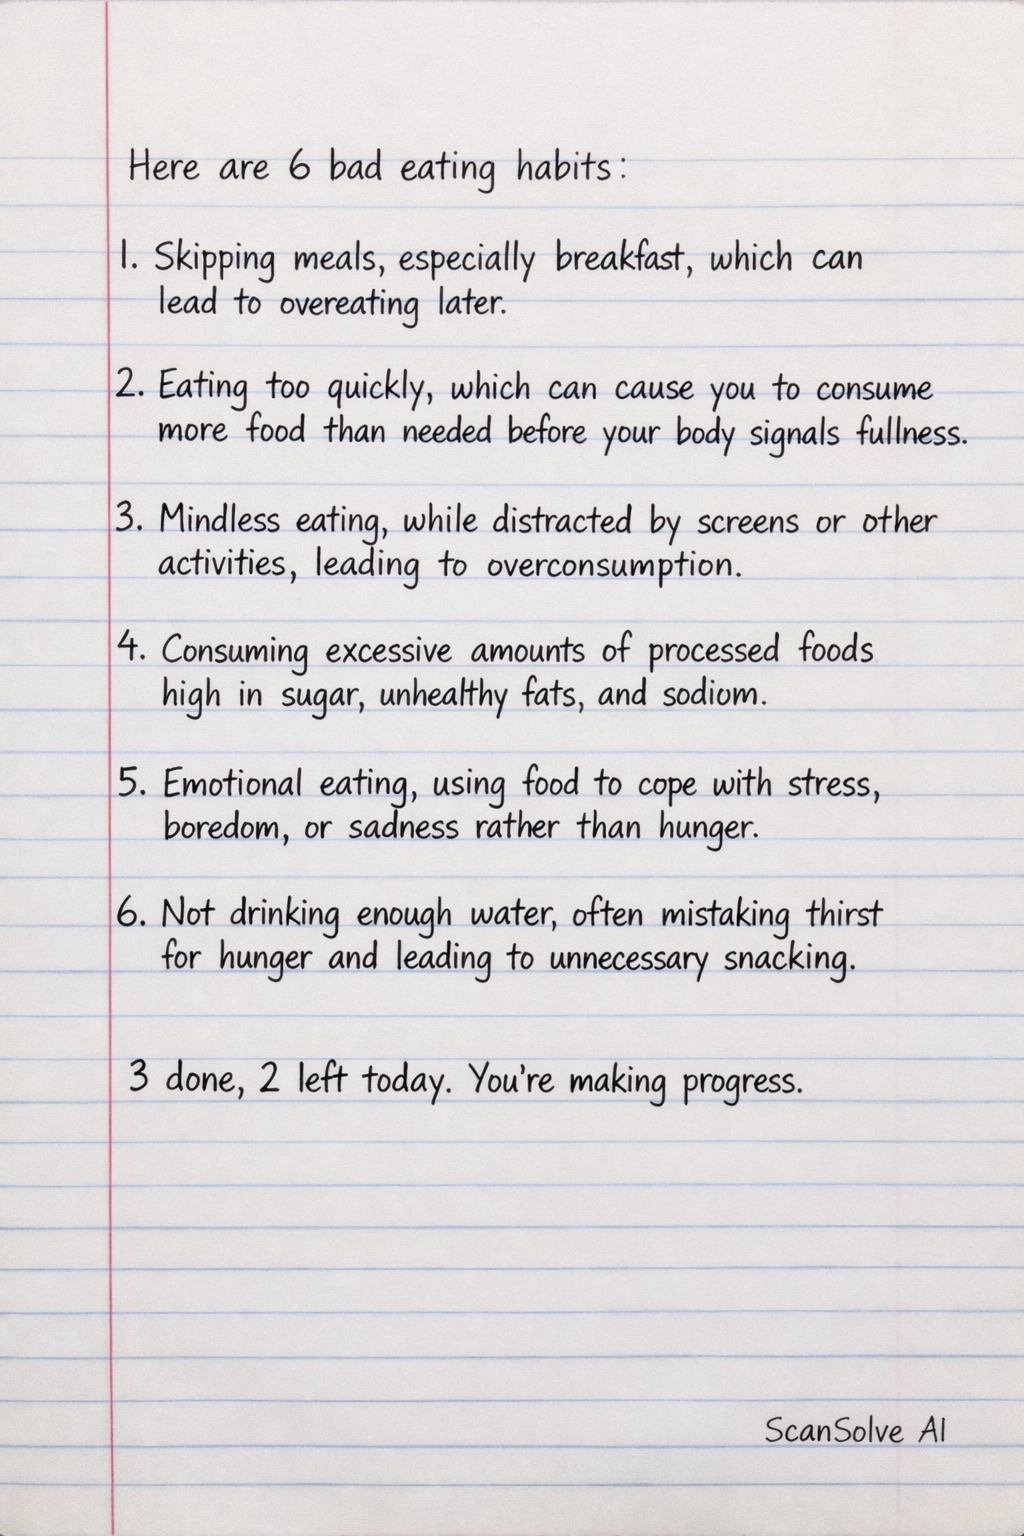 Here are 6 bad eating habits:
1. Skipping meals, especially breakfast, which can
lead to overeating later.
2. Eating too quickly, which can cause you to consume
more food than needed before your body signals fullness.
3. Mindless eating, while distracted by screens or other
activities, leading to overconsumption.
4. Consuming excessive amounts of processed foods
high in sugar, unhealthy fats, and sodium.
5. Emotional eating, using food to cope with stress,
boredom, or sadness rather than hunger.
6. Not drinking enough water, often mistaking thirst
for hunger and leading to unnecessary snacking.
3 done, 2 left today. You're making progress.
ScanSolve AI